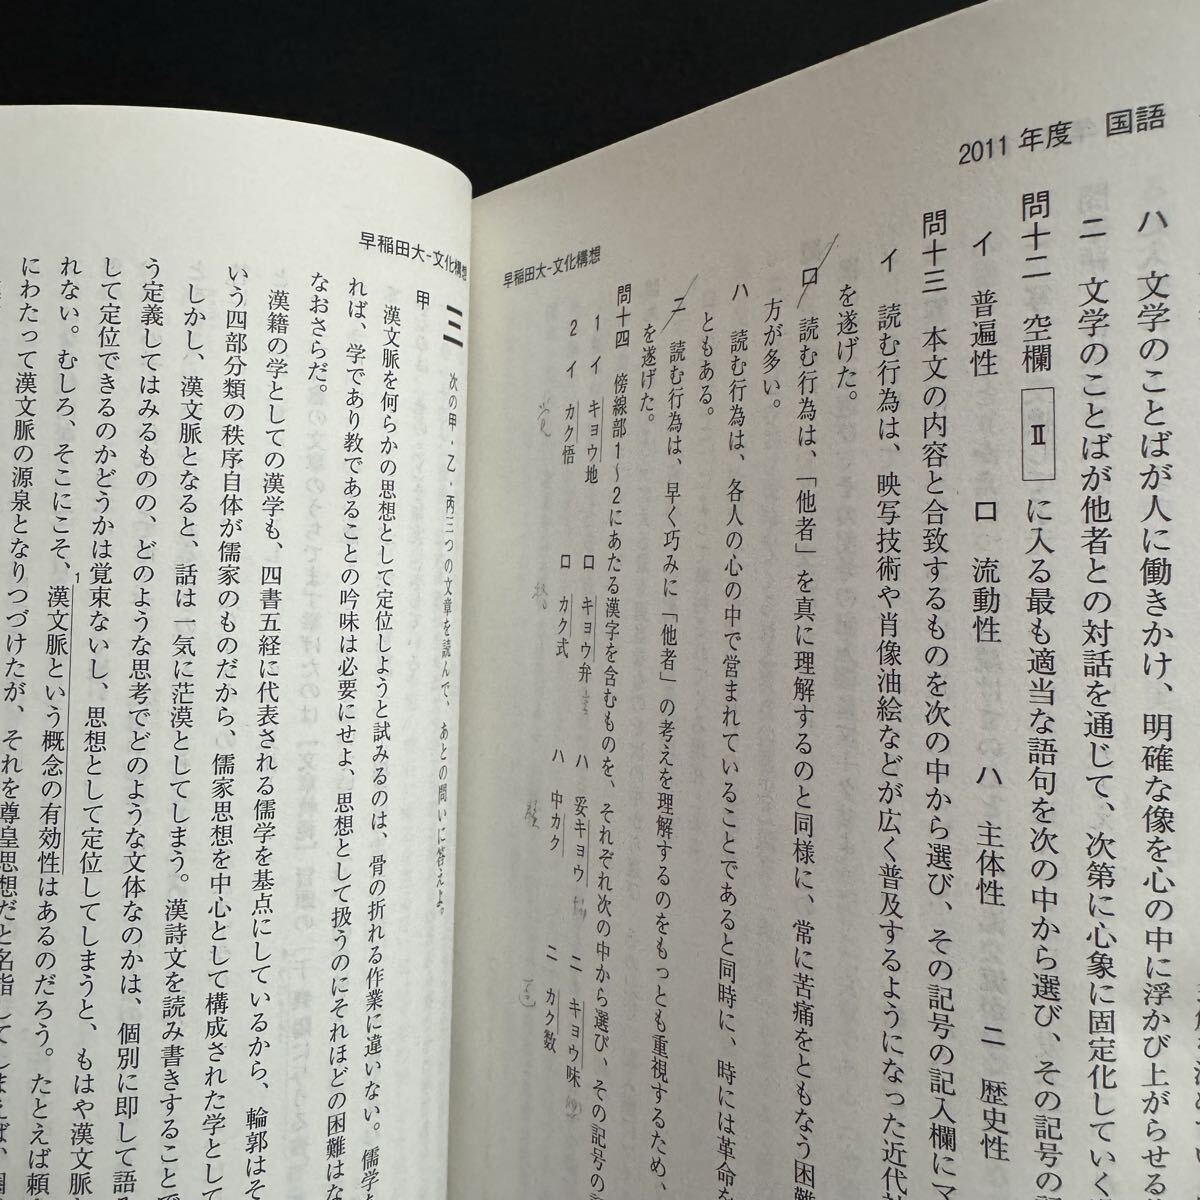 2011年度 国語
ハ 文学のことばが人に働きかけ、明確な像を心の中に浮かび上がらせる
ニ 文学のことばが他者との対話を通じて、次第に心象に固定化していく
問十二 空欄 Ⅱ に入る最も適当な語句を次の中から選び、その記号の
イ 普遍性 ロ 流動性 ハ 主体性 ニ 歴史性
問十三 本文の内容と合致するものを次の中から選び、その記号の記入欄にマ
イ 読む行為は、映写技術や肖像油絵などが広く普及するようになった近代
を遂げた。
ロ 読む行為は、「他者」を真に理解するのと同様に、常に苦痛をともなう困難
方が多い。
ハ 読む行為は、各人の心の中で営まれていることであると同時に、時には革命を
ともある。
ニ 読む行為は、早く巧みに「他者」の考えを理解するのをもっとも重視するため、
を遂げた。
問十四 傍線部1〜2にあたる漢字を含むものを、それぞれ次の中から選び、その記号の
1 イ キョウ地 ロ キョウ弁 ハ 妥キョウ ニ キョウ味
2 イ カク悟 ロ カク式 ハ 中カク ニ カク数
覚
早稲田大-文化構想
早稲田大-文化構想
三 次の甲・乙・丙三つの文章を読んで、あとの問いに答えよ。
甲
漢文脈を何らかの思想として定位しようと試みるのは、骨の折れる作業に違いない。儒学を
れば、学であり教であることの吟味は必要にせよ、思想として扱うのにそれほどの困難はな
なおさらだ。
漢籍の学としての漢学も、四書五経に代表される儒学を基点にしているから、輪郭はそ
いう四部分類の秩序自体が儒家のものだから、儒家思想を中心として構成された学として
しかし、漢文脈となると、話は一気に茫漠としてしまう。漢詩文を読み書きすることで
う定義してはみるものの、どのような思考でどのような文体なのかは、個別に即して語
して定位できるのかどうかは覚束ないし、思想として定位してしまうと、もはや漢文脈
れない。むしろ、そこにこそ、1漢文脈という概念の有効性はあるのだろう。たとえば頼
にわたって漢文脈の源泉となりつづけたが、それを尊皇思想だと名指してしまえば、